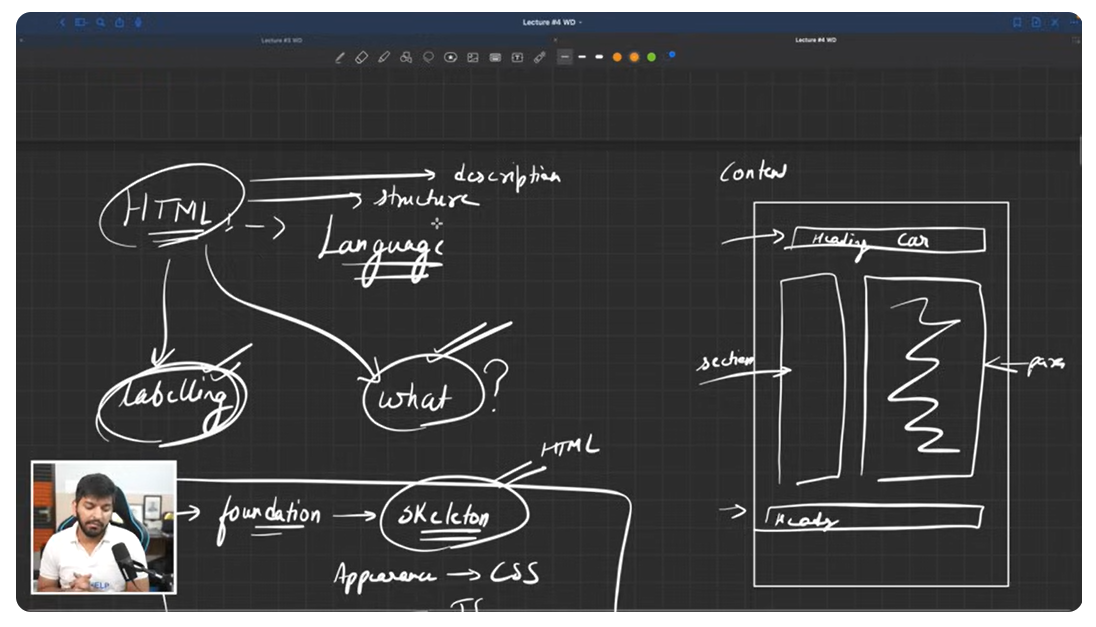 Lecture #4 WD
Lecture #3 WD
Lecture #4 WD
HTML
description
structure
Language
labelling
what ?
HTML
foundation → skeleton
Appearance → CSS
Content
Heading Car
section
Heading
HELP